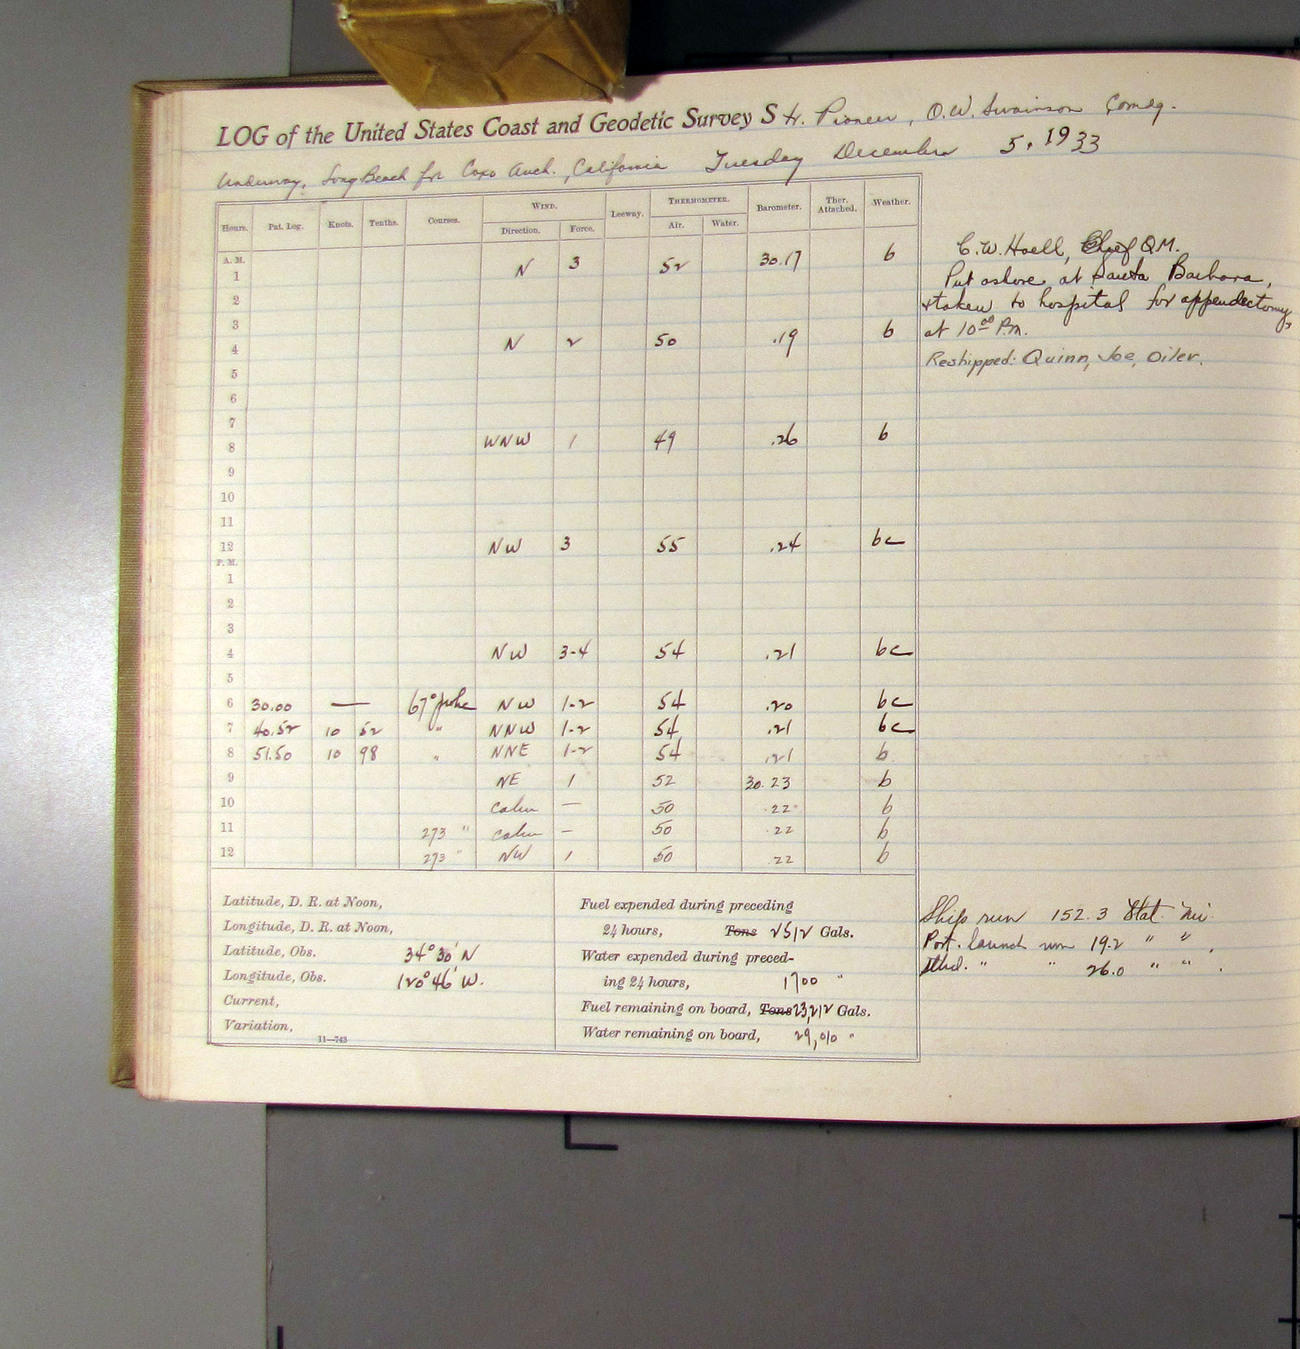 LOG of the United States Coast and Geodetic Survey Str. Pioneer, O.W. Swainson Comdg.
Underway, Long Beach for Coxo Anch., California Tuesday December 5, 1933
Hours. Pat. Log. Knots. Tenths. Courses. WIND. Leeway. THERMOMETER. Barometer. Ther. Attached. Weather.
Direction. Force. Air. Water.
A. M.
1 N 3 52 30.17 b
2
3
4 N 2 50 .19 b
5
6
7
8 WNW 1 49 .26 b
9
10
11
12 NW 3 55 .24 bc
P. M.
1
2
3
4 NW 3-4 54 .21 bc
5
6 30.00 — 67° pshc NW 1-2 54 .20 bc
7 40.52 10 52 " NNW 1-2 54 .21 bc
8 51.50 10 98 " NNE 1-2 54 .21 b
9 NE 1 52 30.23 b
10 Calm — 50 .22 b
11 273 " calm — 50 .22 b
12 273 " NW 1 50 .22 b
C.W. Hoell, Chief Q.M.
Put ashore at Santa Barbara,
& taken to hospital for appendectomy,
at 10 00 P.M.
Reshipped: Quinn, Joe, Oiler.
Latitude, D. R. at Noon,
Longitude, D. R. at Noon,
Latitude, Obs. 34° 30' N
Longitude, Obs. 120° 46' W.
Current,
Variation,
11—743
Fuel expended during preceding
24 hours, Tons 2512 Gals.
Water expended during preced-
ing 24 hours, 1700 "
Fuel remaining on board, Tons 23,212 Gals.
Water remaining on board, 29,010 "
Ship run 152.3 Stat. mi.
Port. launch run 19.2 " " .
Stbd. " " 26.0 " " .